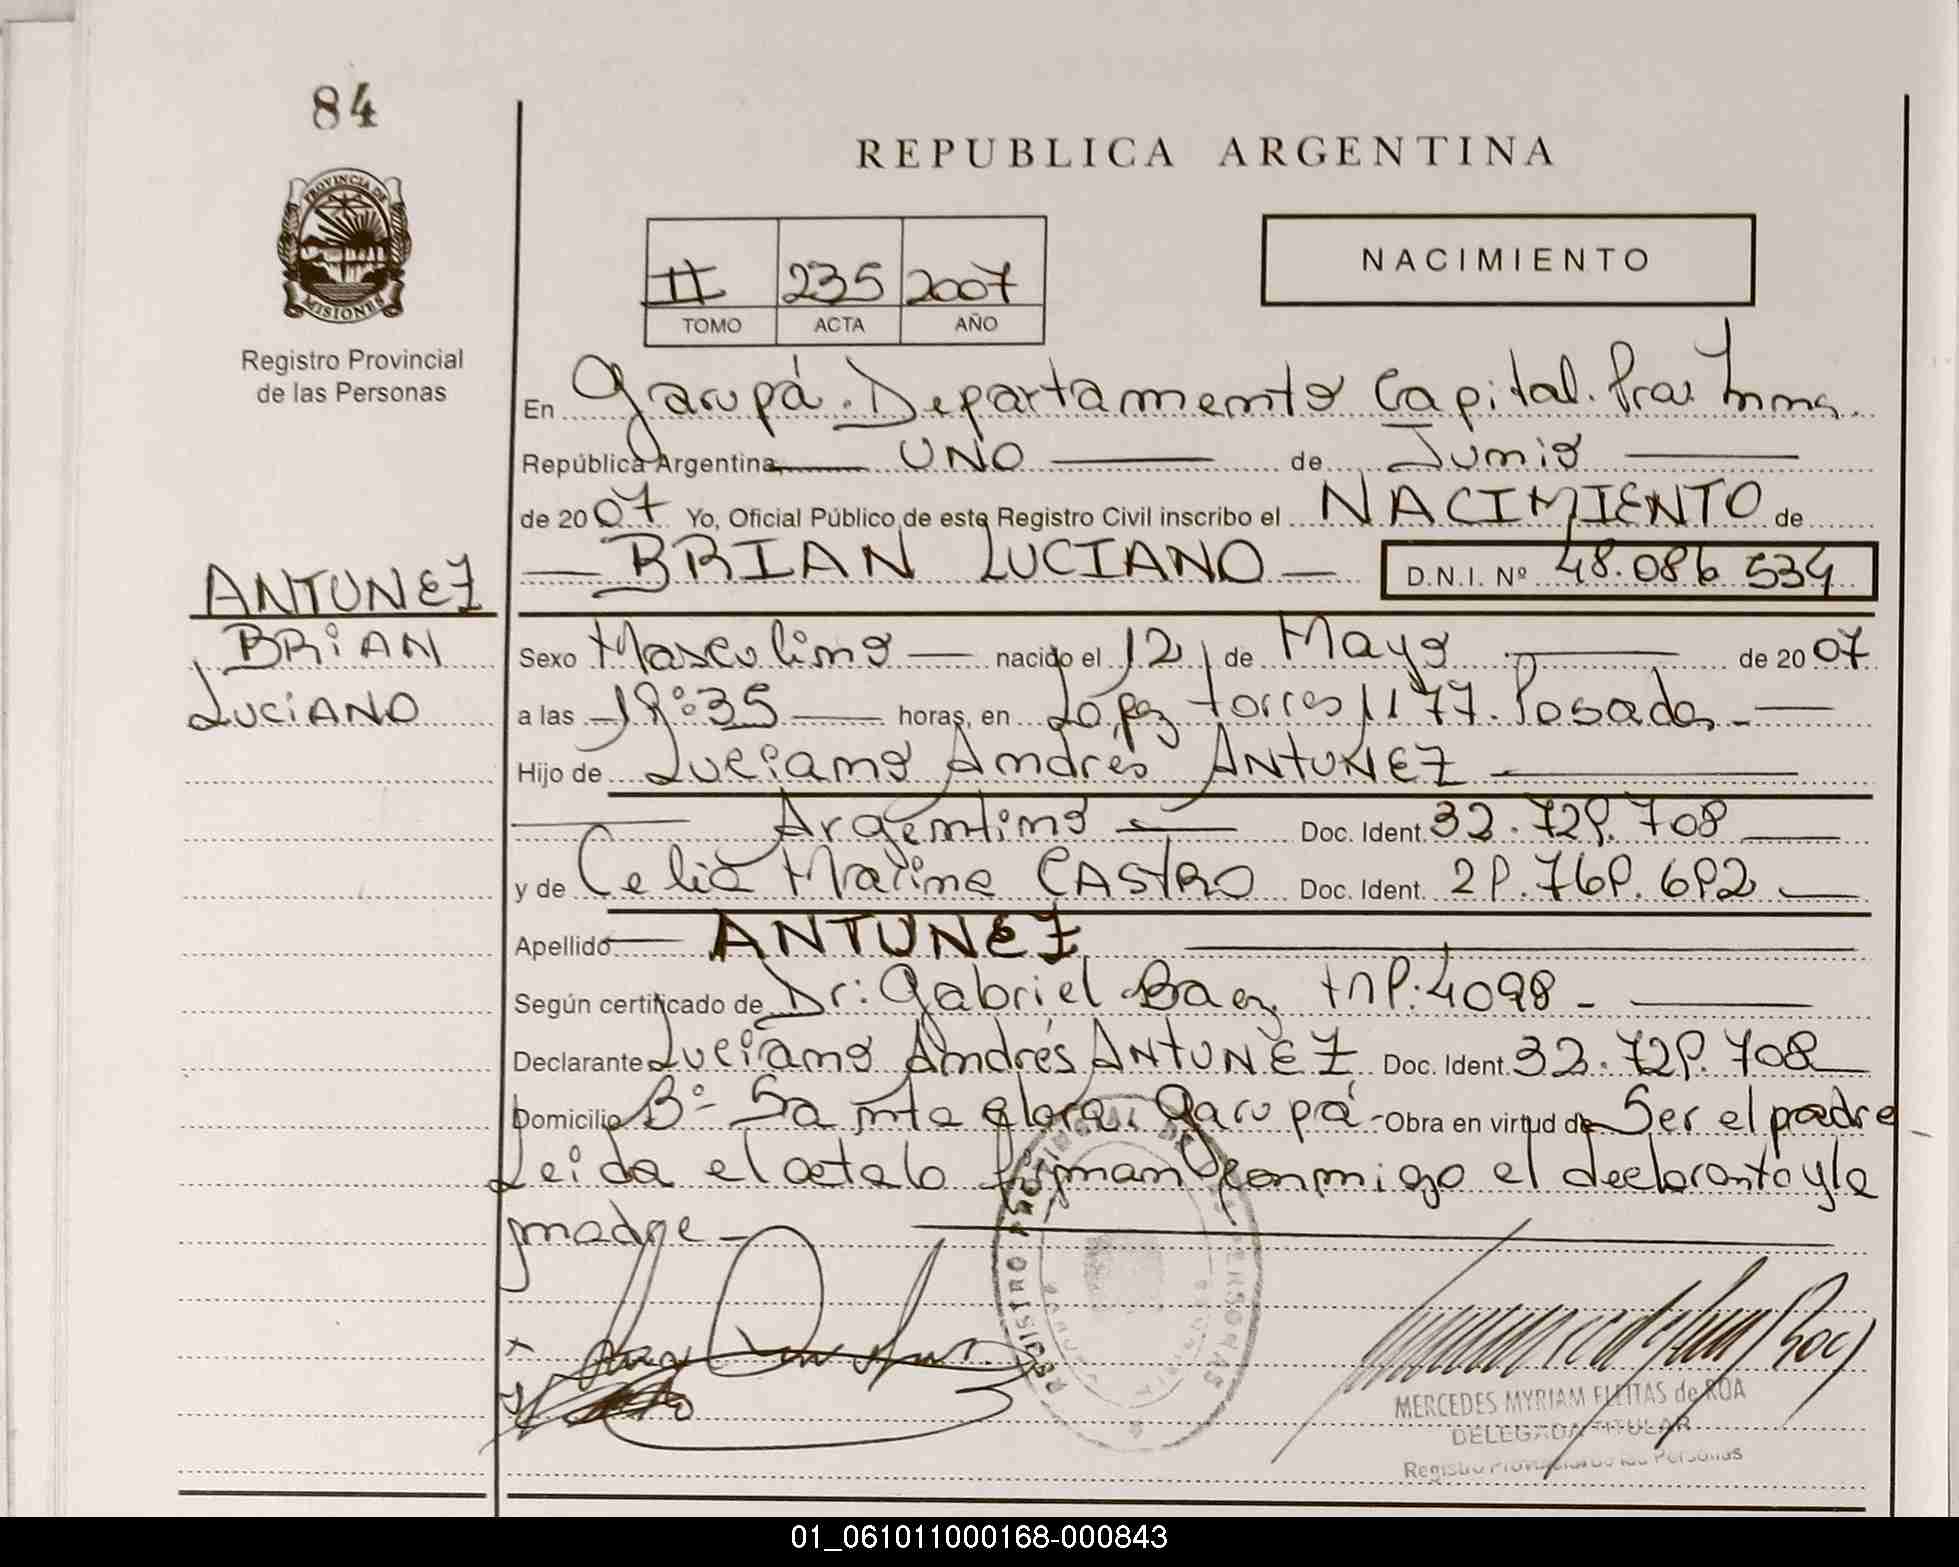 84
REPUBLICA ARGENTINA
PROVINCIA DE
MISIONES
Registro Provincial
de las Personas
II 235 2007
TOMO ACTA AÑO
NACIMIENTO
En Garupá. Departamento Capital.
República Argentina, UNO de Junio
de 2007 Yo, Oficial Público de este Registro Civil inscribo el NACIMIENTO de
BRIAN LUCIANO D.N.I. Nº 48.086 534
ANTUNEZ
BRIAN
LUCIANO
Sexo Masculino nacido el 12 de Mayo de 2007
a las horas, en López torres 1177. Posadas
Hijo de Luciano Andrés ANTUNEZ
Argentino Doc. Ident. 32.729.708
y de Celia Marina CASTRO Doc. Ident. 29.769.692
Apellido ANTUNEZ
Según certificado de Dr: Gabriel Baez 4098
Declarante Luciano Andrés ANTUNEZ Doc. Ident. 32.729.708
Domicilio Bº Santa Garupá Obra en virtud de Ser el padre
Leida el acta la firman conmigo el declarante y la
madre
REGISTRO PROVINCIAL DE LAS PERSONAS
MERCEDES MYRIAM FLEITAS de ROA
DELEGADA TITULAR
Registro Provincial de las Personas
01_061011000168-000843